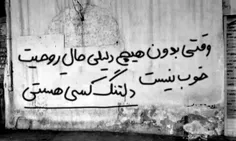 وقتی بدون هیچ دلیلی حال روحیت
خوب نیست
دلتنگ کسی هستی